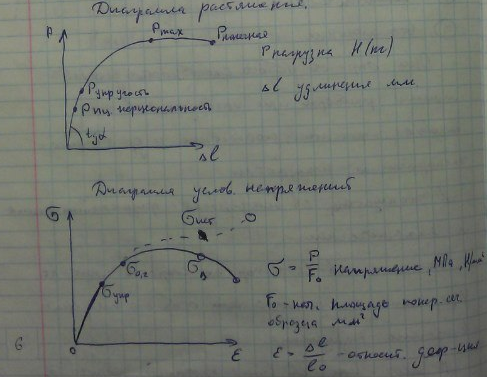 Диаграмма растяжения.
P
Pmax
Pконечная
P нагрузка Н(т)
Pупругость
Pпц. порциональность
Δl удлинения мм
tgα
Δl
Диаграмма услов. напряжений
σ
σист
σ0,2
σв
σупр
σ = P/F₀ напряжение, МПа, Н/мм²
F₀ - нач. площадь попер. сеч. образца мм²
ε = Δl/l₀ - относит. деф-ция
0
ε
6